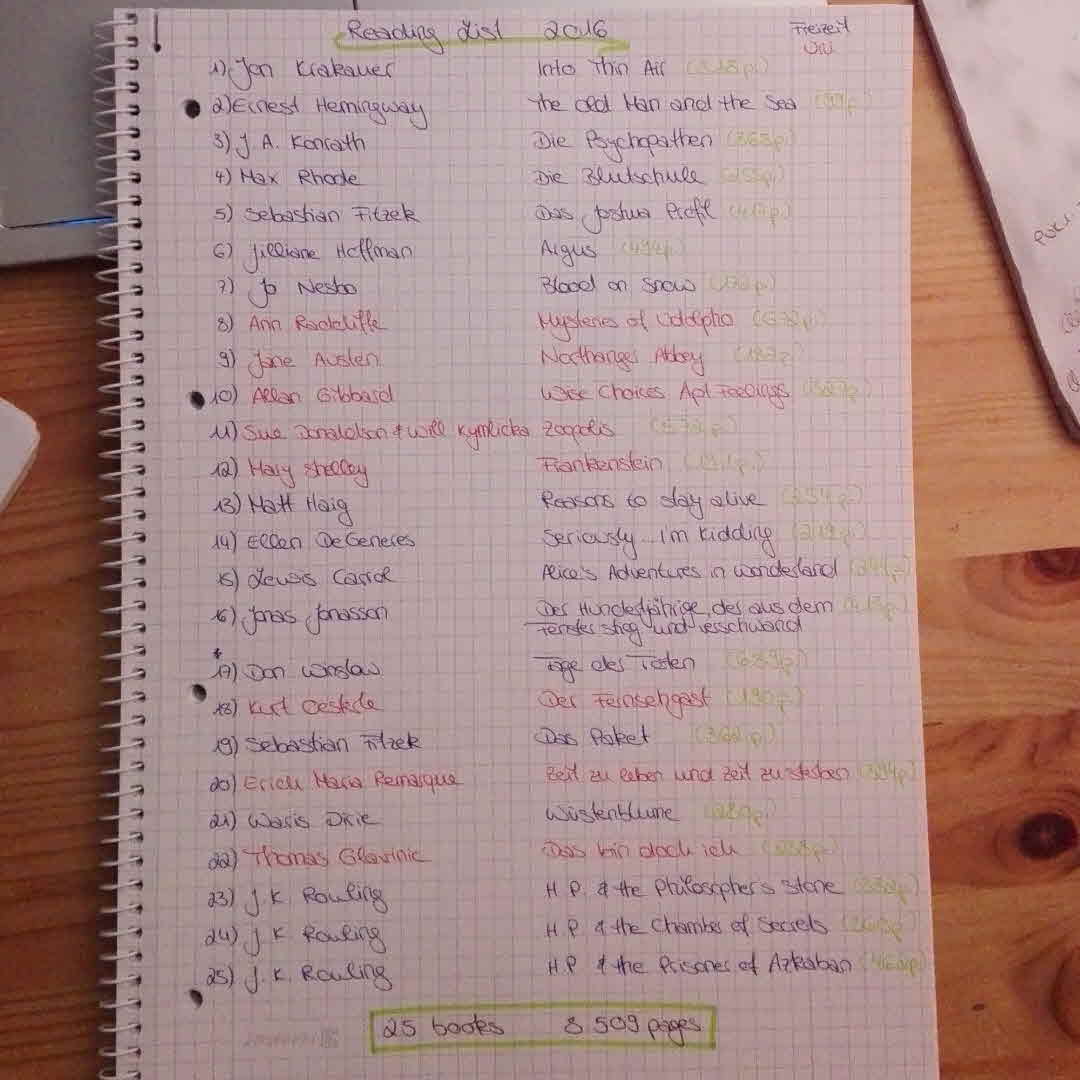 Reading List 2016
Freizeit
Uni
1) Jon Krakauer Into Thin Air
2) Ernest Hemingway The Old Man and the Sea
3) J A. Konrath Die Psychopathen (363p.)
4) Max Rhode Die Blutschule (255p.)
5) Sebastian Fitzek Das Joshua Profil
6) Jilliane Hoffman Argus (494p.)
7) Jo Nesbo Blood on Snow
8) Ann Radcliffe Mysteries of Udolpho (672p.)
9) Jane Austen Northanger Abbey
10) Allan Gibbard Wise Choices Apt Feelings
11) Sue Donaldson & Will Kymlicka Zoopolis
12) Mary Shelley Frankenstein
13) Matt Haig Reasons to stay alive (254p.)
14) Ellen DeGeneres Seriously... I'm kidding
15) Lewis Carrol Alice's Adventures in Wonderland
16) Jonas Jonasson Der Hundertjährige, der aus dem
Fenster stieg und verschwand
17) Don Winslow Tage der Toten (689p.)
18) Kurt Oesterle Der Fernsehgast (190p.)
19) Sebastian Fitzek Das Paket
20) Erich Maria Remarque Zeit zu leben und Zeit zu sterben
21) Waris Dirie Wüstenblume
22) Thomas Glavinic Das bin doch ich
23) J.K. Rowling H.P. & the Philosopher's Stone
24) J.K. Rowling H.P & the Chamber of Secrets
25) J.K. Rowling H.P & the Prisoner of Azkaban
25 books 8 509 pages